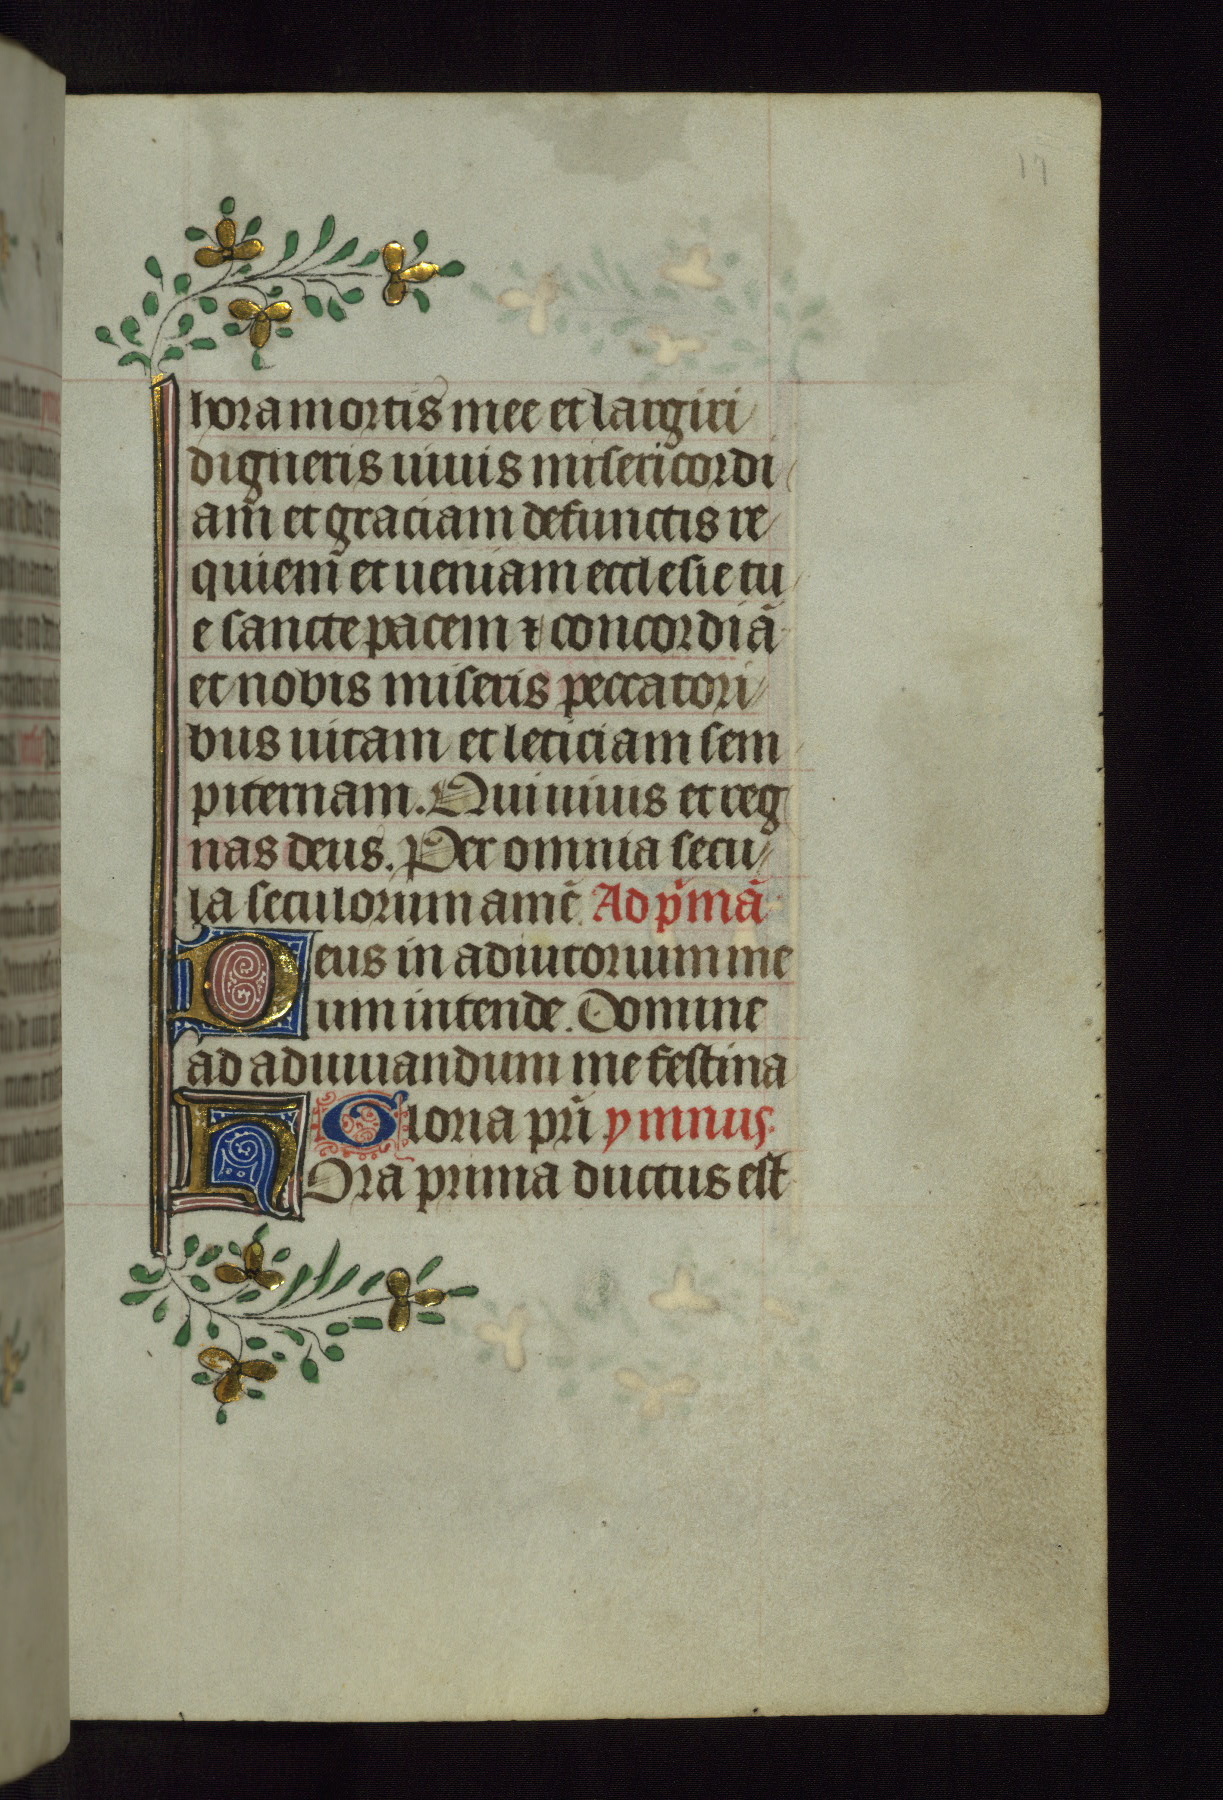 17
hora mortis mee et largiri
digneris uiuis misericordi
am et graciam defunctis re
quiem et ueniam ecclesie tu
e sancte pacem ⁊ concordiā
et nobis miseris peccatori
bus uitam et leticiam sem
piternam. Qui uiuis et reg
nas deus. Per omnia secu
la seculorum amē Ad p̄mā
Deus in adiutorium me
um intende. Domine
ad adiuuandum me festina
Gloria pr̄i ymnus.
HOra prima ductus est